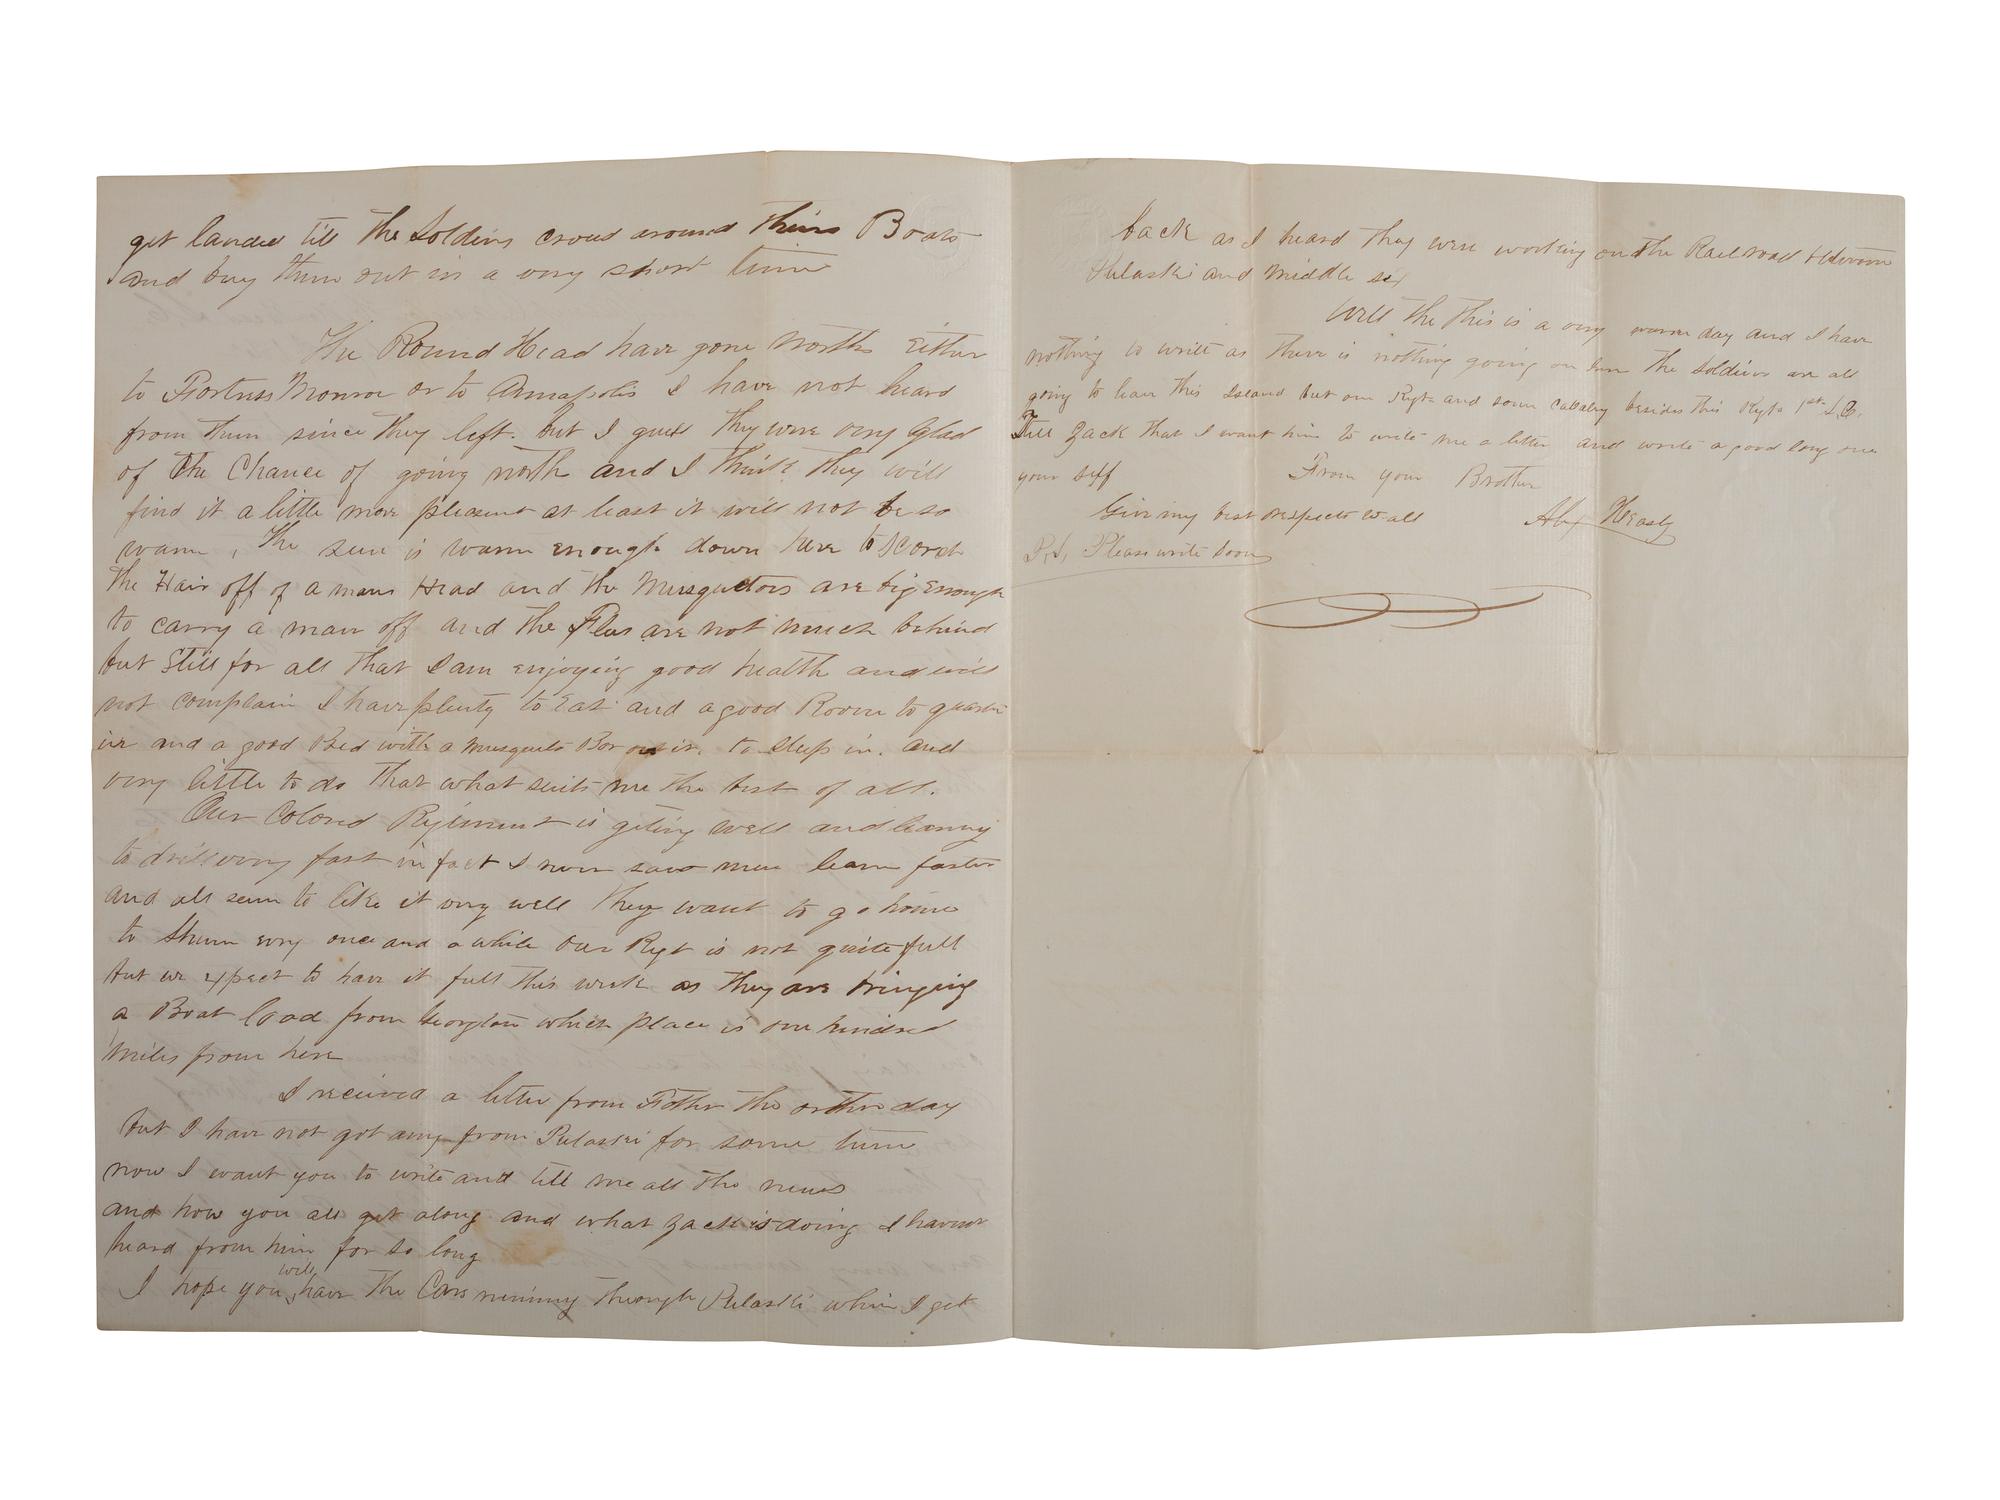 get landed till the Soldiers croud around thirs Boats
and buy them out in a very short time
The Round Head have gone north Either
to Fortress Monroe or to Annapolis I have not heard
from them since they left. but I guess they were very Glad
of the Chance of going north and I think they will
find it a little more pleasent at least it will not be so
warm, The sun is warm enough down here to scorch
the Hair off of a mans Head and the Musquetors are big Enough
to carry a man off and the Fleas are not much behind
but Still for all that I am enjoying good health and will
not complain I have plenty to Eat and a good Room to quarter
in and a good Bed with a musqueto Bar on it. to sleep in. and
very little to do that what suits me the best of all.
Our Colored Regiment is geting well and learning
to drill very fast in fact I never saw men learn faster
and all seem to like it very well They want to go home
to thum evry once and a while Our Regt is not quite full
but we expect to have it full this week as they are bringing
a Boat load from Georgton which place is one hundred
miles from here
I received a letter from Father the other day
but I have not got any from Pulaski for some time
now I want you to write and tell me all the news
and how you all get along and what Zack is doing I havent
heard from him for so long
I hope you will have the Cars running through Pulaski when I get
back as I heard they were working on the Rail road between
Pulaski and Middle sex
Well the this is a very warm day and I have
nothing to write as there is nothing going on here The Soldiers are all
going to leave this Island but our Regt and some Cavalry besides this Regt 1st S.C.
Tell Zack that I want him to write me a letter and write a good long one
your self From your Brother
Give my best respects to all Alx Heasly
P.S. Please write soon